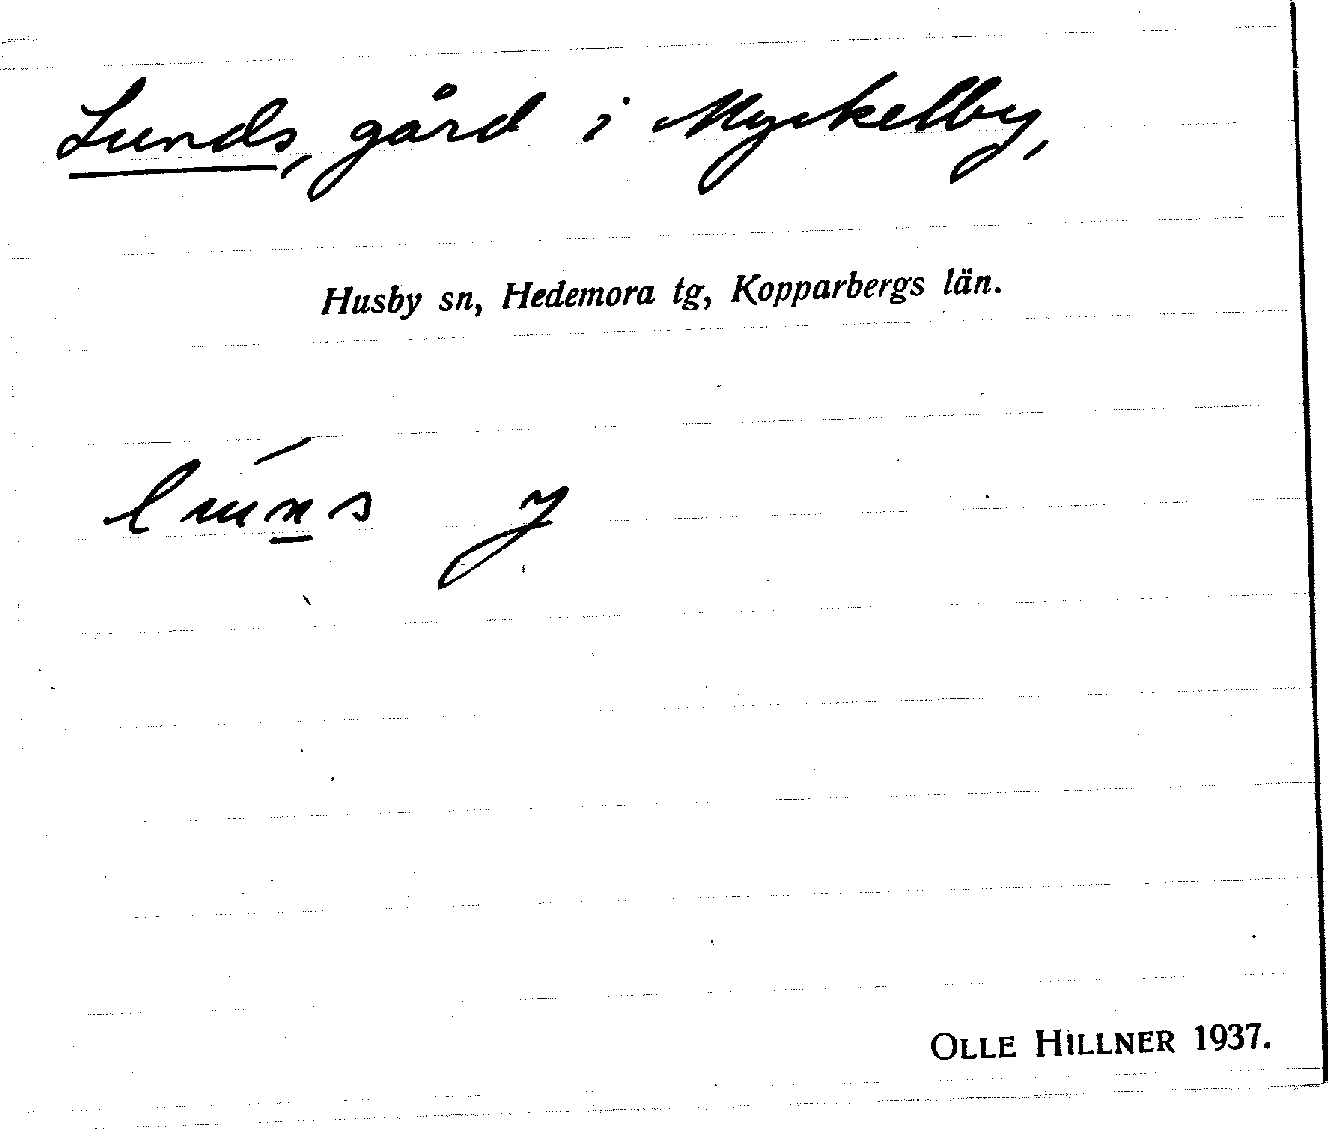 Lunds, gård i Myckelby,
Husby sn, Hedemora tg, Kopparbergs län.
OLLE HILLNER 1937.